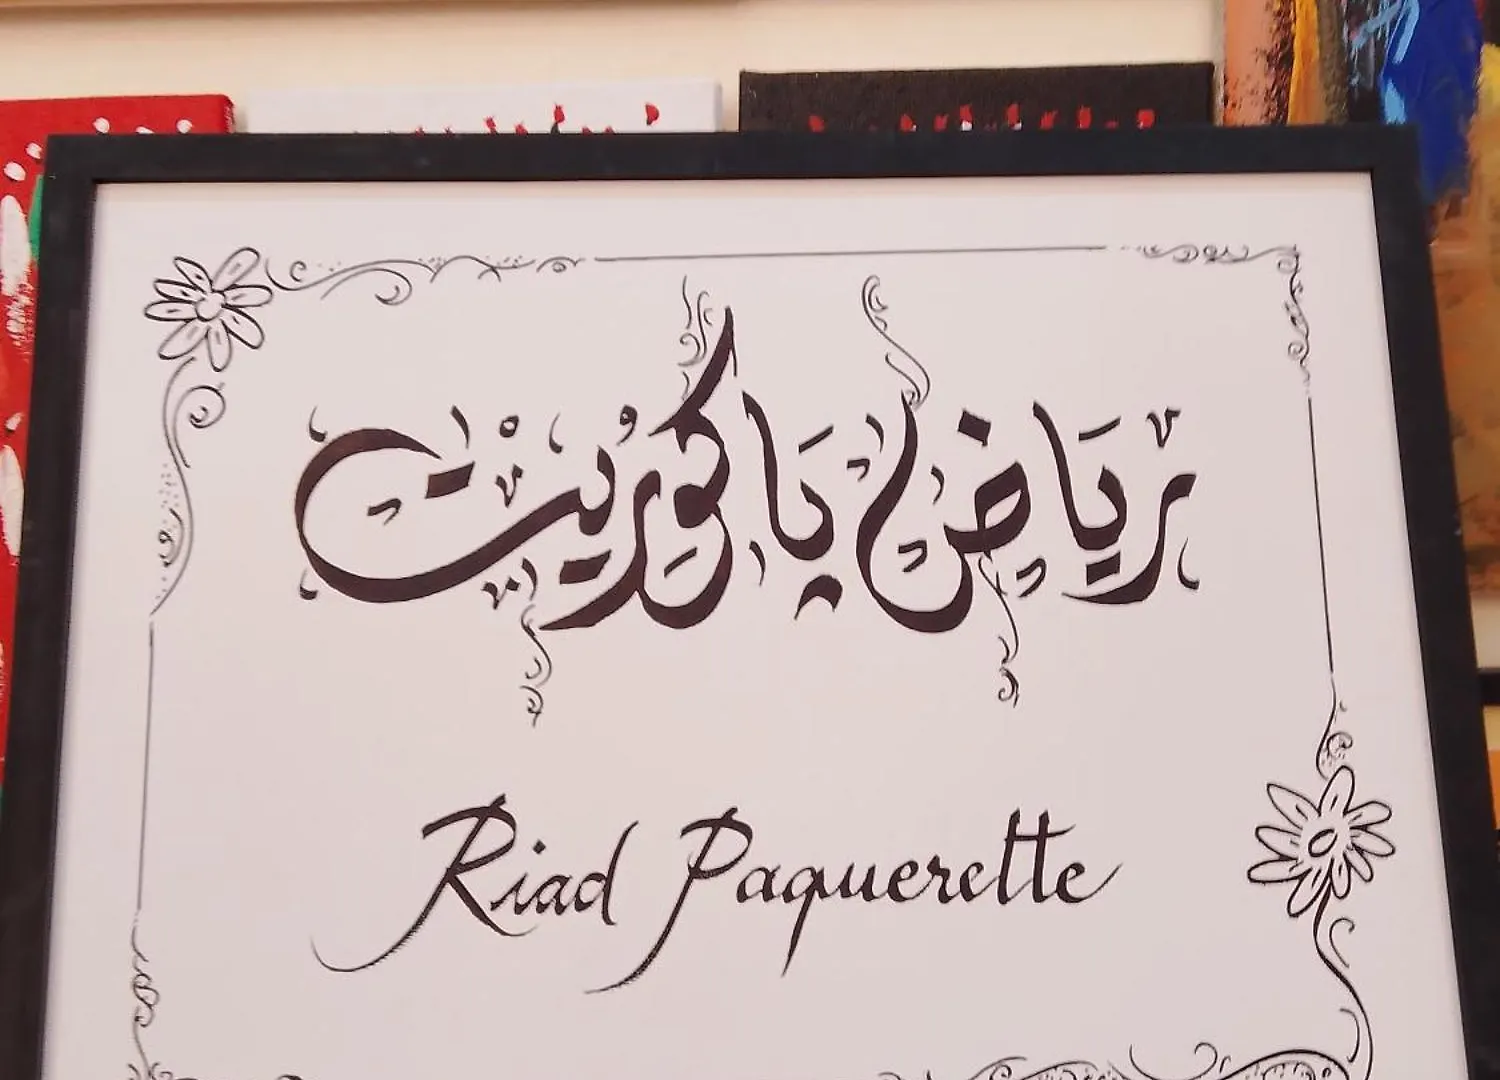 رياض پاكوريت
Riad Paquerette